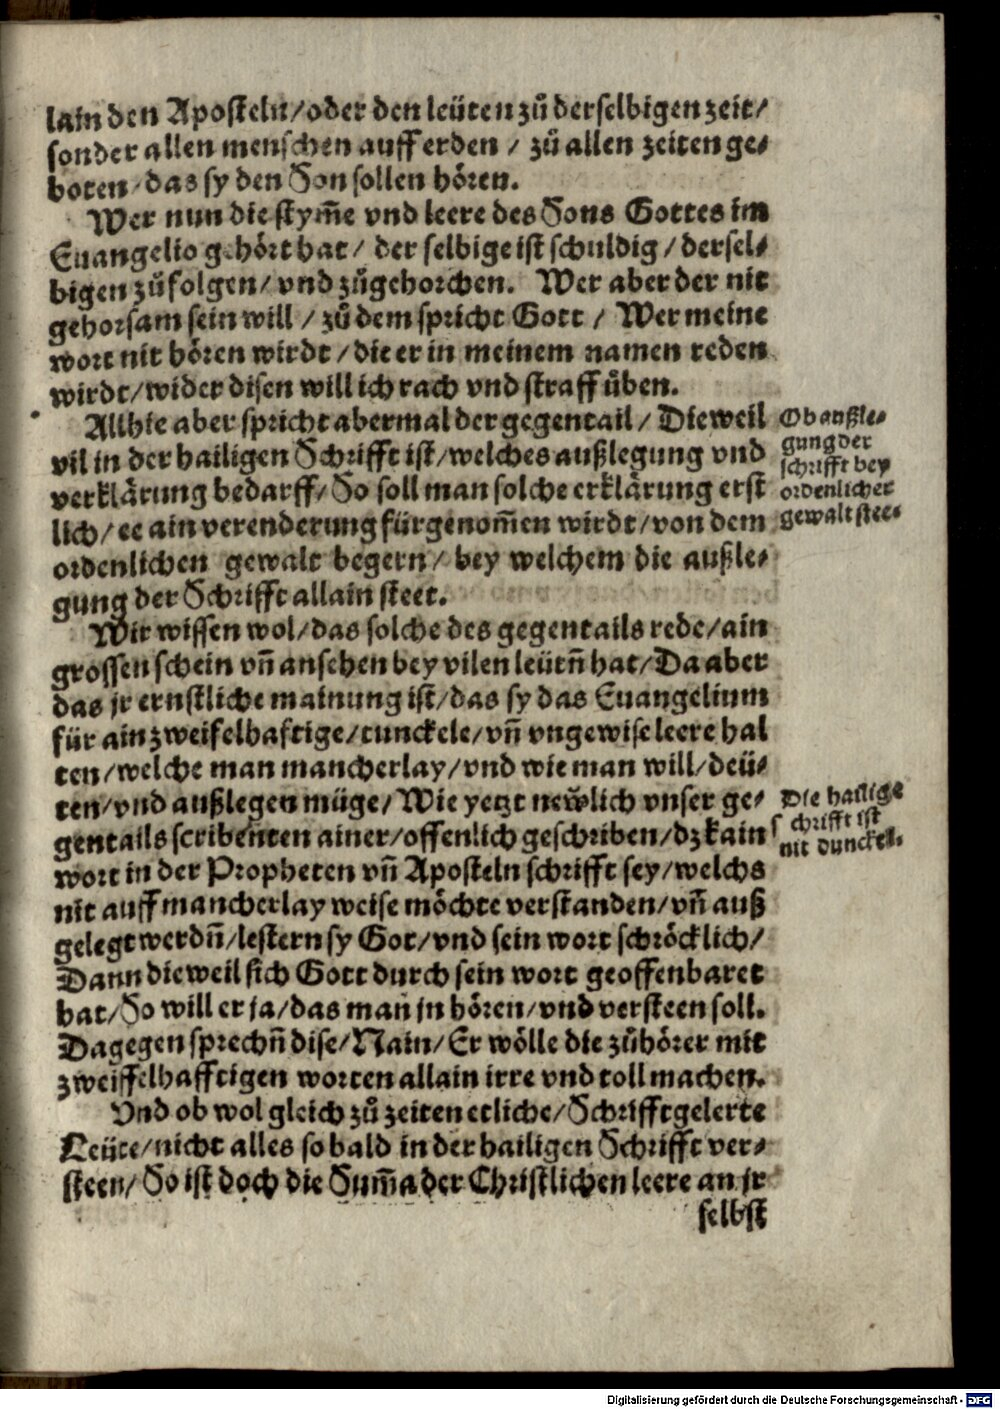 lain den Aposteln/oder den leüten zů derselbigen zeit/
sonder allen menschen auff erden / zů allen zeiten ge⸗
boten/das sy den Son sollen hören.
Wer nun die stym̃e vnd leere des Sons Gottes im
Euangelio gehört hat/ der selbige ist schuldig / dersel⸗
bigen zů folgen/ vnd zůgehorchen. Wer aber der nit
gehorsam sein will / zů dem spricht Gott / Wer meine
wort nit hören wirdt / die er in meinem namen reden
wirdt/wider disen will ich rach vnd straff üben.
Allhie aber spricht abermal der gegentail / Dieweil
vil in der hailigen Schrifft ist/welches außlegung vnd
verklärung bedarff/ So soll man solche erklärung erst
lich/ ee ain verenderung fürgenom̃en wirdt/von dem
ordenlichen gewalt begern/ bey welchem die außle⸗
gung der Schrifft allain steet.
Ob außle⸗
gung der
schrifft bey
ordenlicher
gewalt stee⸗
Wir wissen wol/das solche des gegentails rede/ain
grossen schein vn̄ ansehen bey vilen leütn̄ hat/Da aber
das jr ernstliche mainung ist/das sy das Euangelium
für ain zweifelhaftige/tunckele/vn̄ vngewise leere hal
ten/welche man mancherlay/vnd wie man will/deü⸗
ten/vnd außlegen müge/Wie yetzt newlich vnser ge⸗
gentails scribenten ainer/offenlich geschriben/dz kain
wort in der Propheten vn̄ Aposteln schrifft sey/welchs
nit auff mancherlay weise möchte verstanden/vn̄ auß
gelegt werdn̄/lestern sy Got/vnd sein wort schröcklich/
Dann dieweil sich Gott durch sein wort geoffenbaret
hat/So will er ja/das man jn hören/vnd versteen soll.
Dagegen sprechn̄ dise/Nain/Er wölle die zůhörer mit
zweiffelhafftigen worten allain irre vnd toll machen.
Die hailige
schrifft ist
nit dunckel.
Vnd ob wol gleich zů zeiten etliche/Schrifftgelerte
Leüte/nicht alles so bald in der hailigen Schrifft ver⸗
steen/ So ist doch die Sum̃a der Christlichen leere an jr
selbst
Digitalisierung gefördert durch die Deutsche Forschungsgemeinschaft - DFG